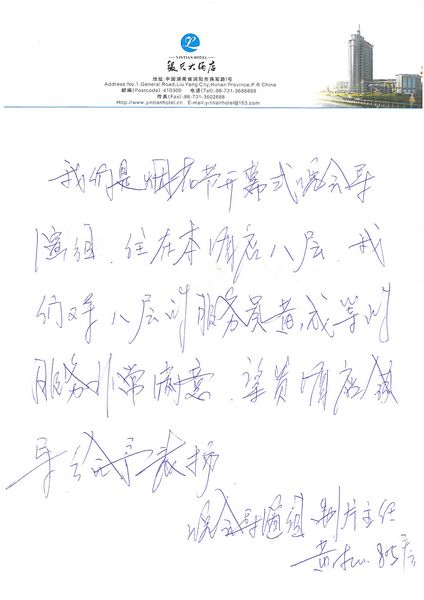 YINTIAN HOTEL
银天大酒店
地址:中国湖南省浏阳市将军路1号
Address:No.1.General Road,Liu Yang City,Hunan Province,P.R.China
邮编(Postcode):410300 电话(Tel):86-731-3688888
传真(Fax):86-731-3602688
Http://www.yintianhotel.cn E-mail:yintianhotel@163.com
我们是烟花节开幕式晚会导
演组.住在本酒店八层.我
们对于八层的服务员黄成等的
服务非常满意.望贵酒店领
导给予表扬
晚会导演组 制片主任
黄 805房